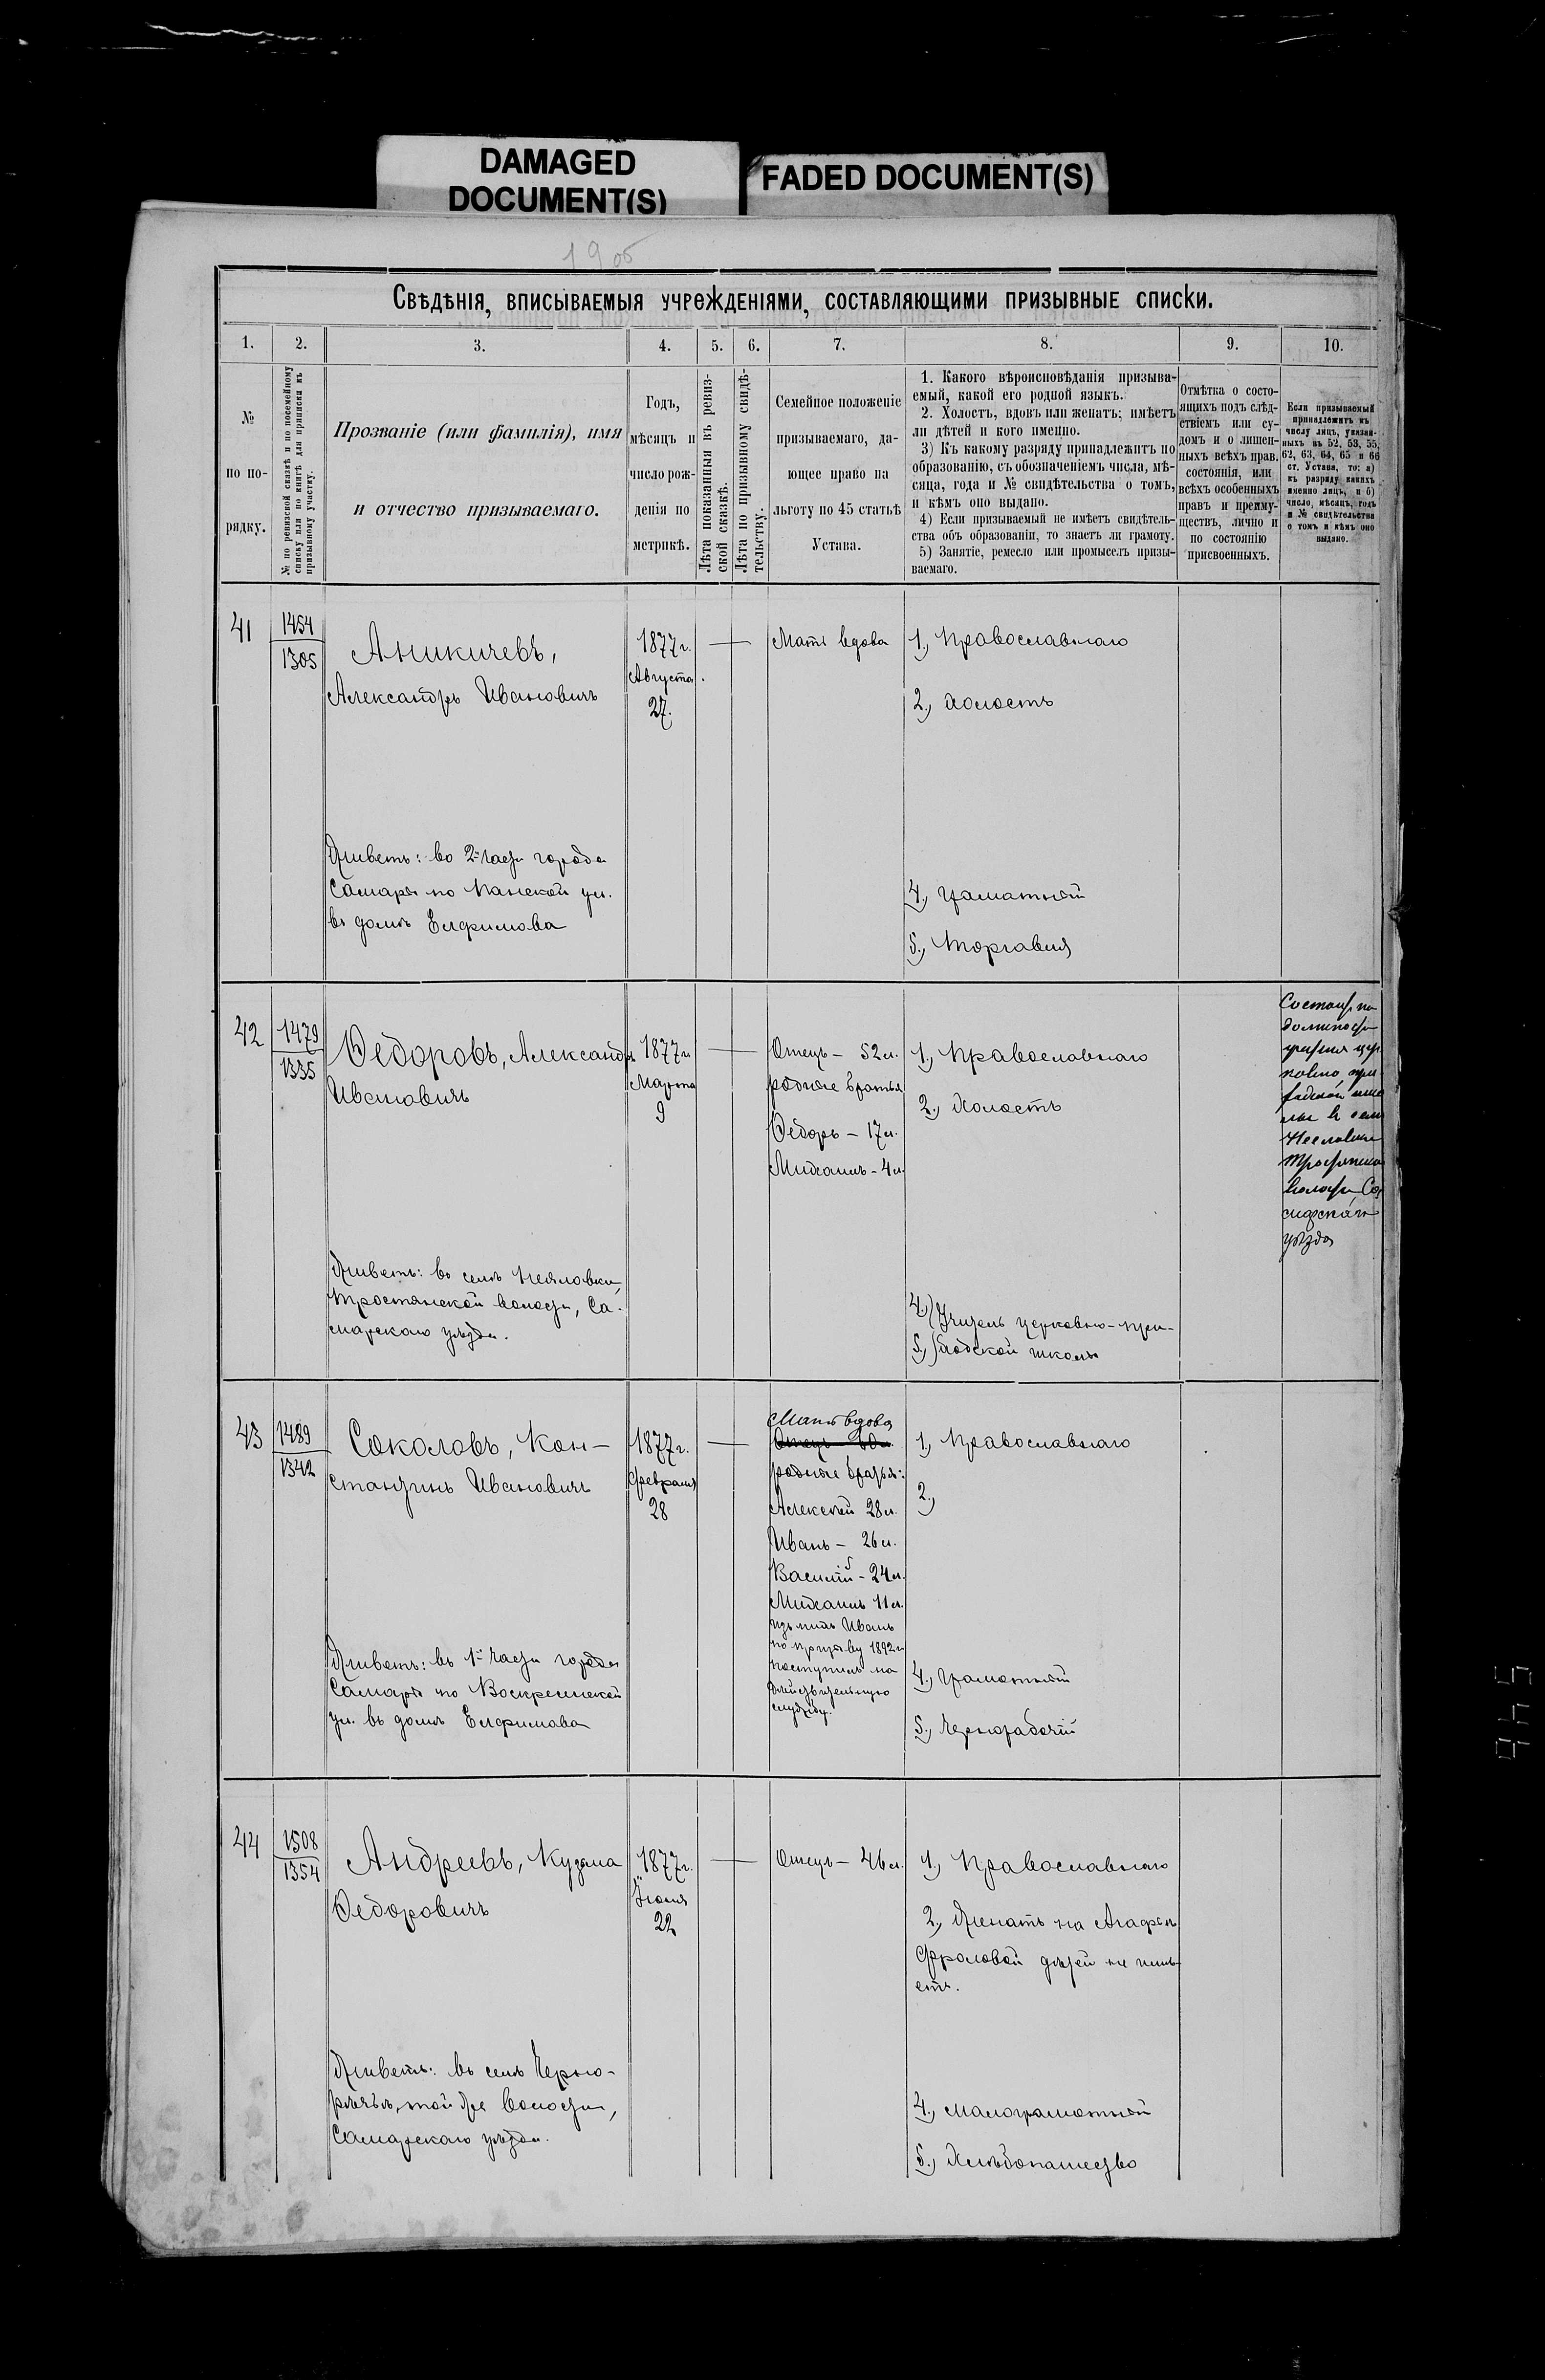 DAMAGED
DOCUMENT(S)
FADED DOCUMENT(S)
1905
Свѣдѣнія, вписываемыя учрежденіями, составляющими призывные списки.
1. 2. 3. 4. 5. 6. 7. 8. 9. 10.
№
по по-
рядку.
№ по ревизской сказкѣ и по посемейному
списку или по книгѣ для приписки къ
призывному участку.
Прозваніе (или фамилія), имя
и отчество призываемаго.
Годъ,
мѣсяцъ и
число рож-
денія по
метрикѣ.
Лѣта показанныя въ ревиз-
ской сказкѣ.
Лѣта по призывному свидѣ-
тельству.
Семейное положеніе
призываемаго, да-
ющее право на
льготу по 45 статьѣ
Устава.
1. Какого вѣроисповѣданія призыва-
емый, какой его родной языкъ.
2. Холостъ, вдовъ или женатъ; имѣетъ
ли дѣтей и кого именно.
3) Къ какому разряду принадлежитъ по
образованію, съ обозначеніемъ числа, мѣ-
сяца, года и № свидѣтельства о томъ,
и кѣмъ оно выдано.
4) Если призываемый не имѣетъ свидѣтель-
ства объ образованіи, то знаетъ ли грамоту.
5) Занятіе, ремесло или промыселъ призы-
ваемаго.
Отмѣтка о состо-
ящихъ подъ слѣд-
ствіемъ или су-
домъ и о лишен-
ныхъ всѣхъ прав.
состоянія, или
всѣхъ особенныхъ
правъ и преиму-
ществъ, лично и
по состоянію
присвоенныхъ.
Если призываемый
принадлежитъ къ
числу лицъ, указан-
ныхъ въ 52, 53, 55,
62, 63, 64, 65 и 66
ст. Устава, то: а)
къ разряду какихъ
именно лицъ, и б)
число, мѣсяцъ, годъ
и № свидѣтельства
о томъ и кѣмъ оно
выдано.
41
1454
1305
Аникичевъ,
Александръ Ивановичъ
Живетъ: во 2й части города
Самары по Панской ул.
въ домѣ Елфимова
1877 г.
Августа
27.
Мать вдова
1., Православнаго
2., Холостъ
4., грамотный
5., Торговля
42
1479
1335
Ѳедоровъ, Александръ
Ивановичъ
Живетъ: въ селѣ Неяловки,
Тростянской волости, Са-
марскаго уѣзда.
1877 г.
Марта
9
Отецъ - 52 л.
родные братья
Ѳедоръ - 17 л.
Михаилъ - 4 л.
1., Православнаго
2., Холостъ
4.,) Учитель церковно-при-
5.,) ходской школы
Состоитъ на
должности
учителя цер
ковно при
ходской шко
лы въ селѣ
волости Са
марскаго
уѣзда
43
1489
1342
Соколовъ, Кон-
стантинъ Ивановичъ
Живетъ: въ 1й части города
Самары по Воскресенской
ул. въ домѣ Елфимова
1877 г.
Февраля
28
Мать вдова
родные братья:
Алексѣй 28 л.
Иванъ - 26 л.
Василій - 24 л.
Михаилъ 11 л.
изъ нихъ Иванъ
по призыву 1892 г
поступилъ на
дѣйствительную
службу.
1., Православнаго
2.,
4., грамотный
5., Чернорабочій
44
1508
1354
Андреевъ, Кузьма
Ѳедоровичъ
Живетъ: въ селѣ Черно-
рѣчьѣ, той же волости,
Самарскаго уѣзда.
1877 г.
Іюня
22
Отецъ - 46 л.
1., Православнаго
2., Женатъ на Агафьѣ
Фроловой дѣтей не имѣ-
етъ.
4., малограмотный
5., Хлѣбопашество